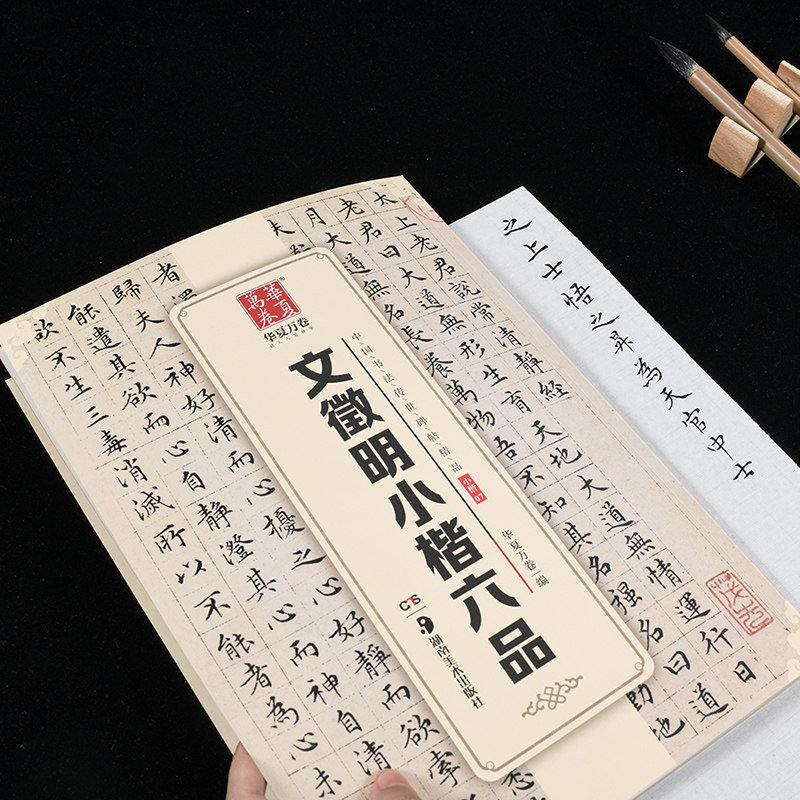 太上老君說常清靜經
老君曰大道無形生育天地大道無情運行日
月大道無名長養萬物吾不知其名強名曰道
夫
地
者
歸夫人神好清而心擾之心好靜而欲
能遣其欲而心自靜澄其心而神自清
欲不生三毒消滅所以不能者為心未
華夏
萬卷
®
华夏万卷
中国书法传世碑帖精品
小楷
07
文徵明小楷六品
华夏万卷 编
湖南美术出版社
之上士悟之昇為天官中士